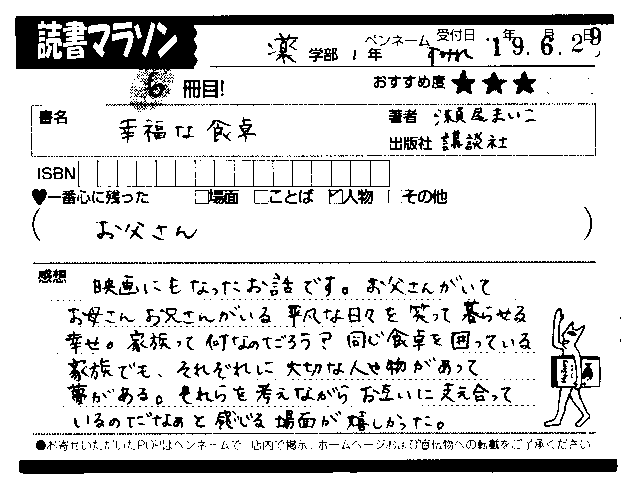 読書マラソン
薬 学部 1 年 ペンネーム すみれ 受付日 '19.6.29 年 月 日
6 冊目! おすすめ度 ★★★
書名 幸福な食卓 著者 瀬尾まいこ
出版社 講談社
ISBN
♥一番心に残った □場面 □ことば ☑人物 □その他
(お父さん)
感想 映画にもなったお話です。お父さんがいて
お母さんお兄さんがいる平凡な日々を笑って暮らせる
幸せ。家族って何なのだろう?同じ食卓を囲っている
家族でも、それぞれに大切な人や物があって
夢がある。それらを考えながらお互いに支え合って
いるのだなぁと感じる場面が嬉しかった。
●お寄せいただいたPOPはペンネームで、店内で掲示、ホームページおよび宣伝物への転載をご了承ください